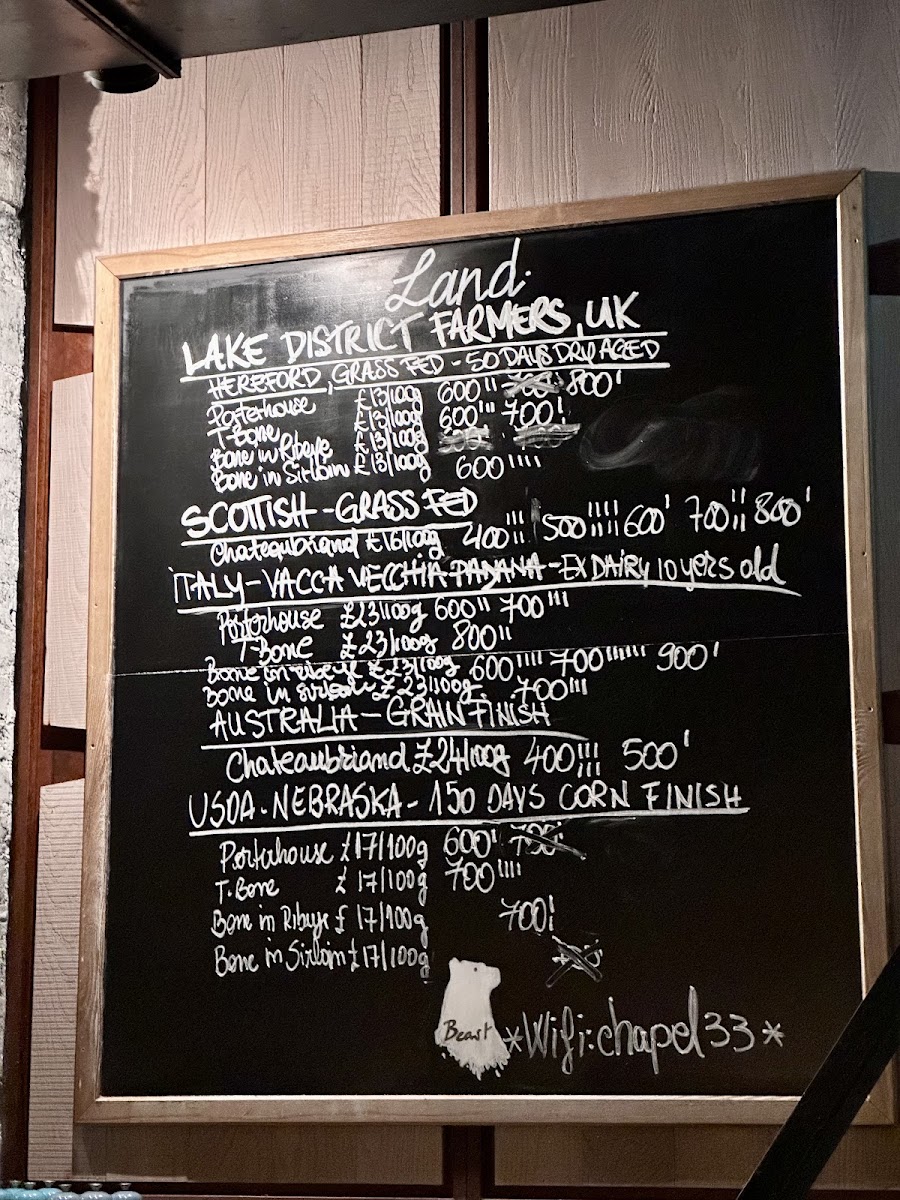 Land.
LAKE DISTRICT FARMERS, UK
HEREFORD, GRASS FED - 50 DAYS DRY AGED
Porterhouse £13/100g 600'' 800'
T-Bone £13/100g 600''' 700'
Bone in Ribeye £13/100g
Bone in Sirloin £13/100g 600''''
SCOTTISH - GRASS FED
Chateaubriand £16/100g 400 500 600' 700 800'
ITALY - VACCA VECCHIA PADANA - EX DAIRY 10 yers old
Porterhouse £23/100g 600'' 700'''
T-Bone £23/100g 800''
Bone in ribeye £23/100g 600'''' 700'''''' 900'
Bone in sirloin £23/100g. 700'''
AUSTRALIA - GRAIN FINISH
Chateaubriand £24/100g 400 500'
USDA. NEBRASKA - 150 DAYS CORN FINISH
Porterhouse £17/100g 600' 700'
T-Bone £17/100g 700''''
Bone in Ribeye £17/100g 700
Bone in Sirloin £17/100g
Beast
*Wifi:chapel33*